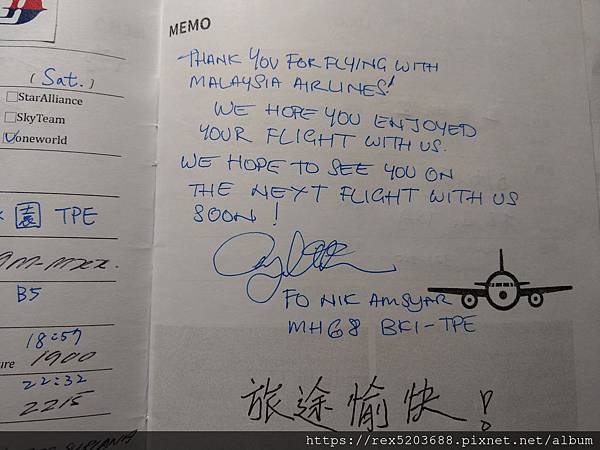 (Sat.)
StarAlliance
SkyTeam
oneworld
園 TPE
B5
18:57
1900
22:32
2215
MEMO
THANK YOU FOR FLYING WITH
MALAYSIA AIRLINES!
WE HOPE YOU ENJOYED
YOUR FLIGHT WITH US.
WE HOPE TO SEE YOU ON
THE NEXT FLIGHT WITH US
SOON!
FO NIK AMSYAR
MH68 BKI-TPE
旅途愉快!
https://rex5203688.pixnet.net/album